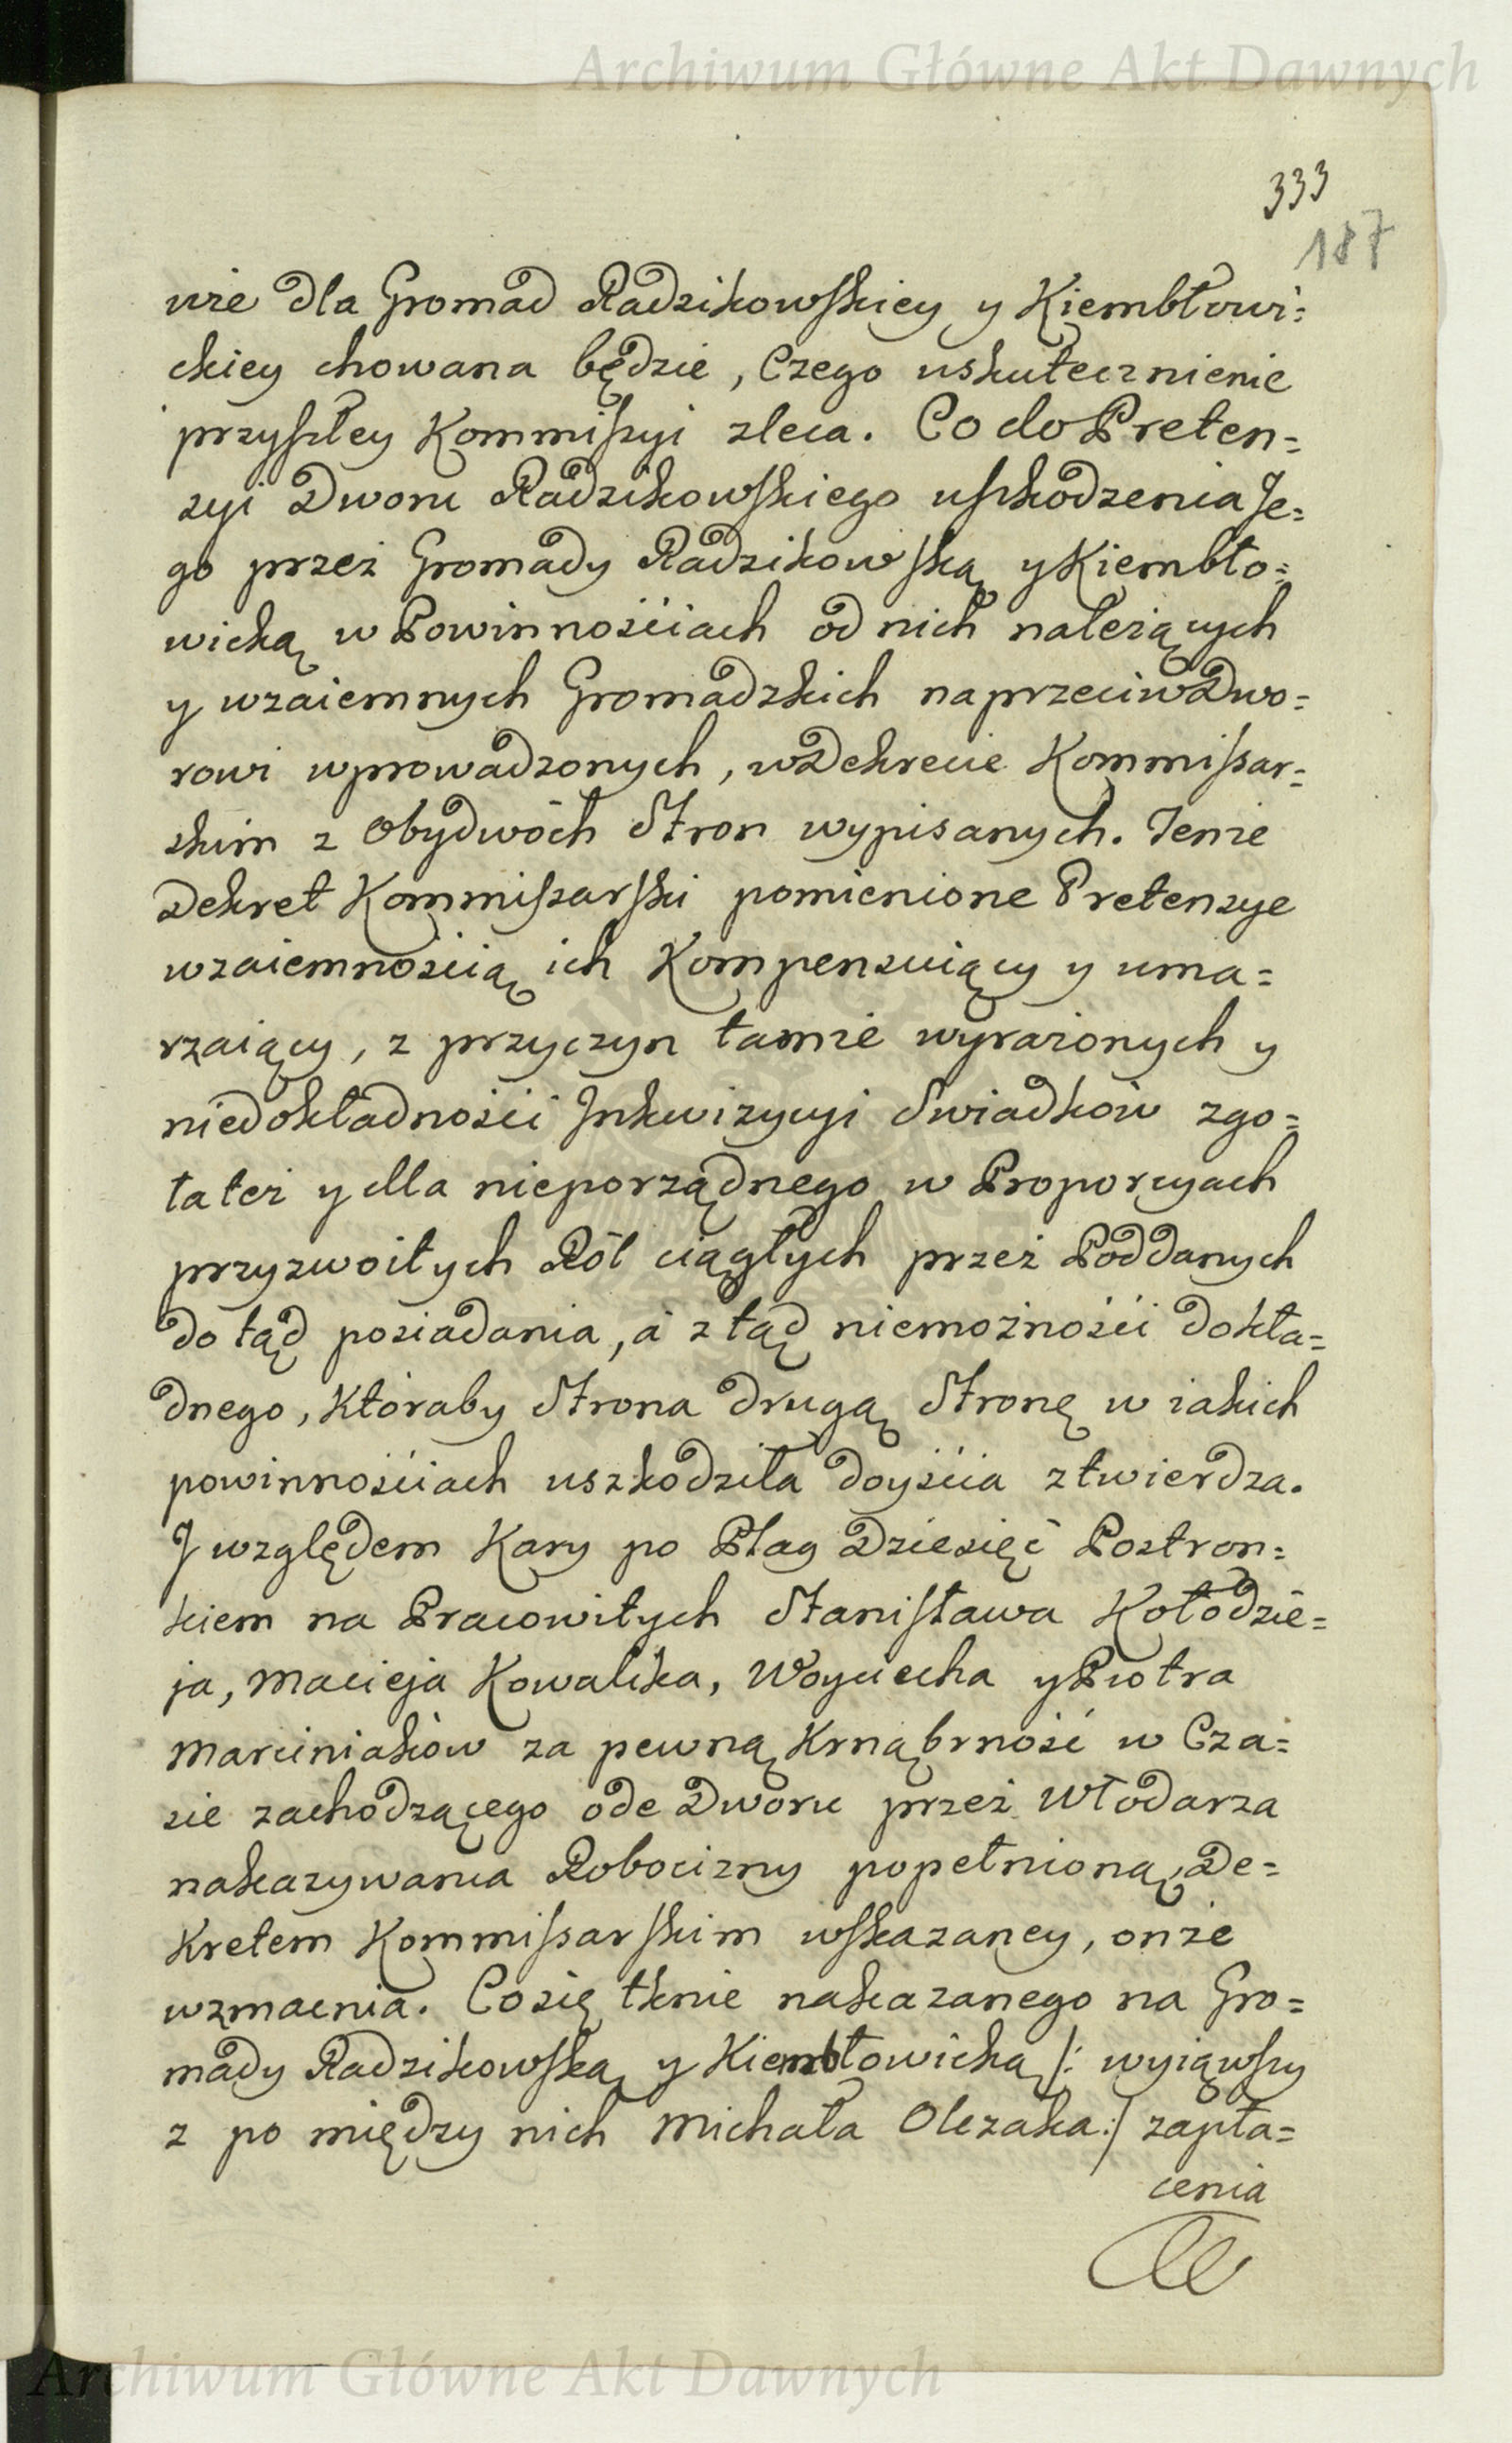 Archiwum Główne Akt Dawnych
333
187
wie dla Gromad Radzikowskiey y Kiembłowi=
ckiey chowana będzie, Czego uskutecznienie
przyszłey Kommissyi zleca. Co do Preten=
syi Dworu Radzikowskiego uszkodzenia Je=
go przez Gromady Radzikowską y Kiembło=
wicką w Powinnościach od nich należących
y wzaiemnych Gromadzkich naprzeciw Dwo=
rowi wprowadzonych, w Dekrecie Kommissar=
skim z Obydwóch Stron wypisanych. Tenże
Dekret Kommissarski pomienione Pretensye
wzaiemnością ich Kompensuiący y uma=
rzaiący, z przyczyn tamże wyrażonych y
niedokładności Inkwizycyi Swiadków zgo=
ła też y dla nieporządnego w Proporcyach
przyzwoitych Ról ciągłych przez Poddanych
do tąd posiadania, a z tąd niemożności dokła=
dnego, któraby Strona drugą Stronę w iakich
powinnościach uszkodziła doyścia ztwierdza.
J względem Kary po Plag Dziesięć Postron=
kiem na Pracowitych Stanisława Kołodzie=
ja, Macieja Kowalika, Woyciecha y Piotra
Marciniaków za pewną Krnąbrność w Cza=
sie zachodzącego ode Dworu przez Włodarza
nakazywania Robocizny popełnioną, De=
kretem Kommissarskim wskazaney, onże
wzmacnia. Co się tknie nakazanego na Gro=
mady Radzikowską y Kiembłowicką /: wyiąwszy
z po między nich Michała Olczaka :/ zapła=
cenia
Archiwum Główne Akt Dawnych